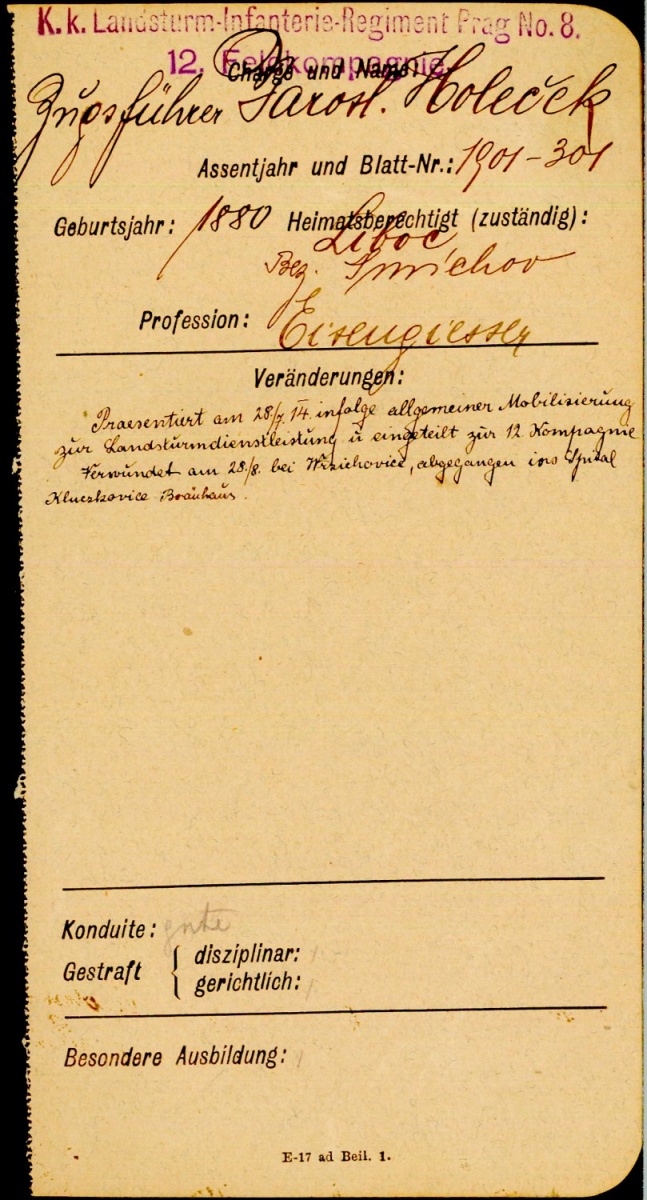 K. k. Landsturm-Infanterie-Regiment Prag No. 8.
12. Feldkompagnie
Charge und Name:
Zugsführer Jarosl. Holeček
Assentjahr und Blatt-Nr.: 1901-301
Geburtsjahr: 1880 Heimatsberechtigt (zuständig):
Liboc
Bez. Smichov
Profession: Eisengiesser
Veränderungen:
Praesentiert am 28/7. 14. infolge allgemeiner Mobilisierung
zur Landsturmdienstleistung u eingeteilt zur 12. Kompagnie
Verwundet am 28./8. bei Wrzichovice, abgegangen ins Spital
Kluczkovice Bräuhaus.
Konduite: gute
Gestraft { disziplinar:
gerichtlich:
Besondere Ausbildung:
E-17 ad Beil. 1.